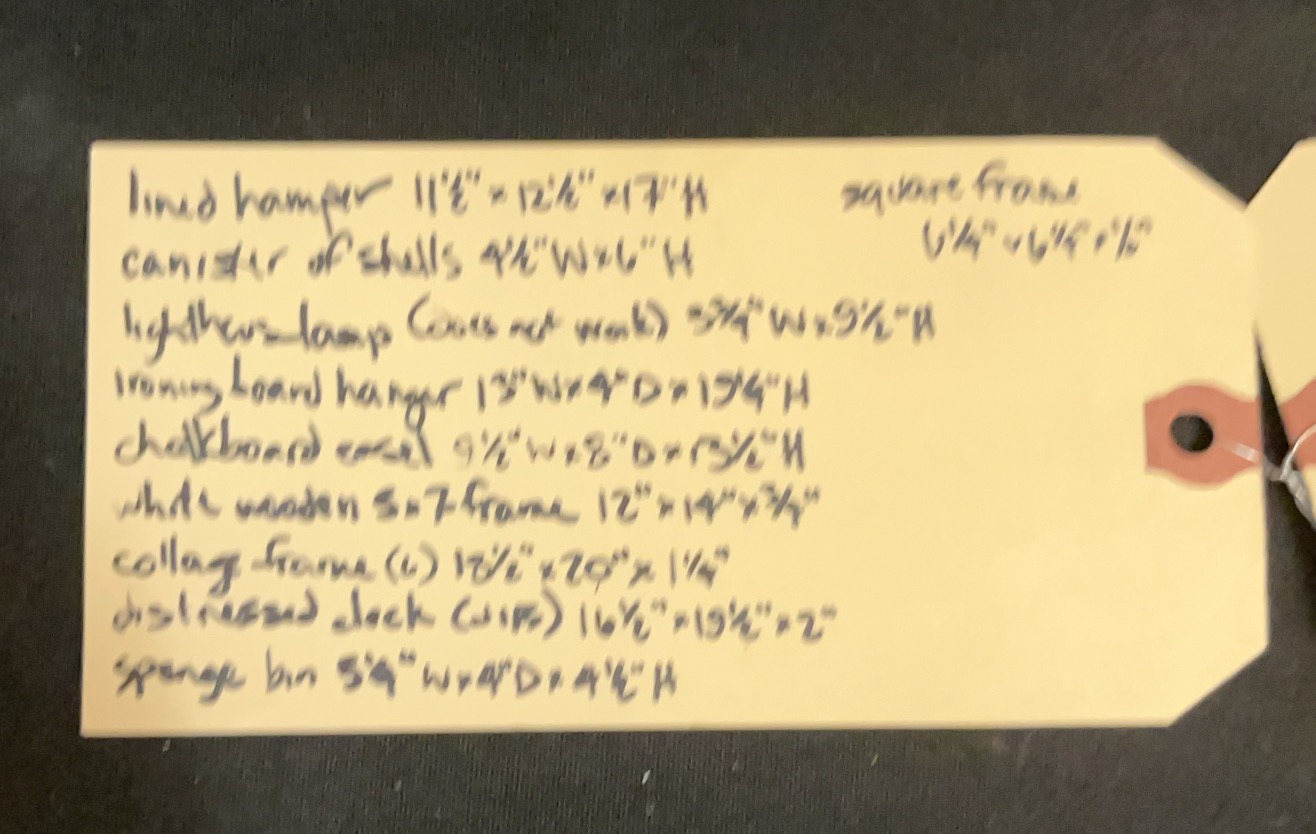 lined hamper 11½" x 12½" x 17" H
canister of shells 4½" W x 6" H
lighthouse lamp (does not work) 5¾" W x 9½" H
ironing board hanger 13" W x 4" D x H
chalkboard easel 9½" W x 8" D x 13½" H
white wooden 5x7 frame 12" x 14" x ¾"
collage frame x 20" x 1¼"
distressed clock 16½" x x 2"
sponge bin 5¼" W x 4" D x 4½" H
square frame
6¼" x 6¼" x